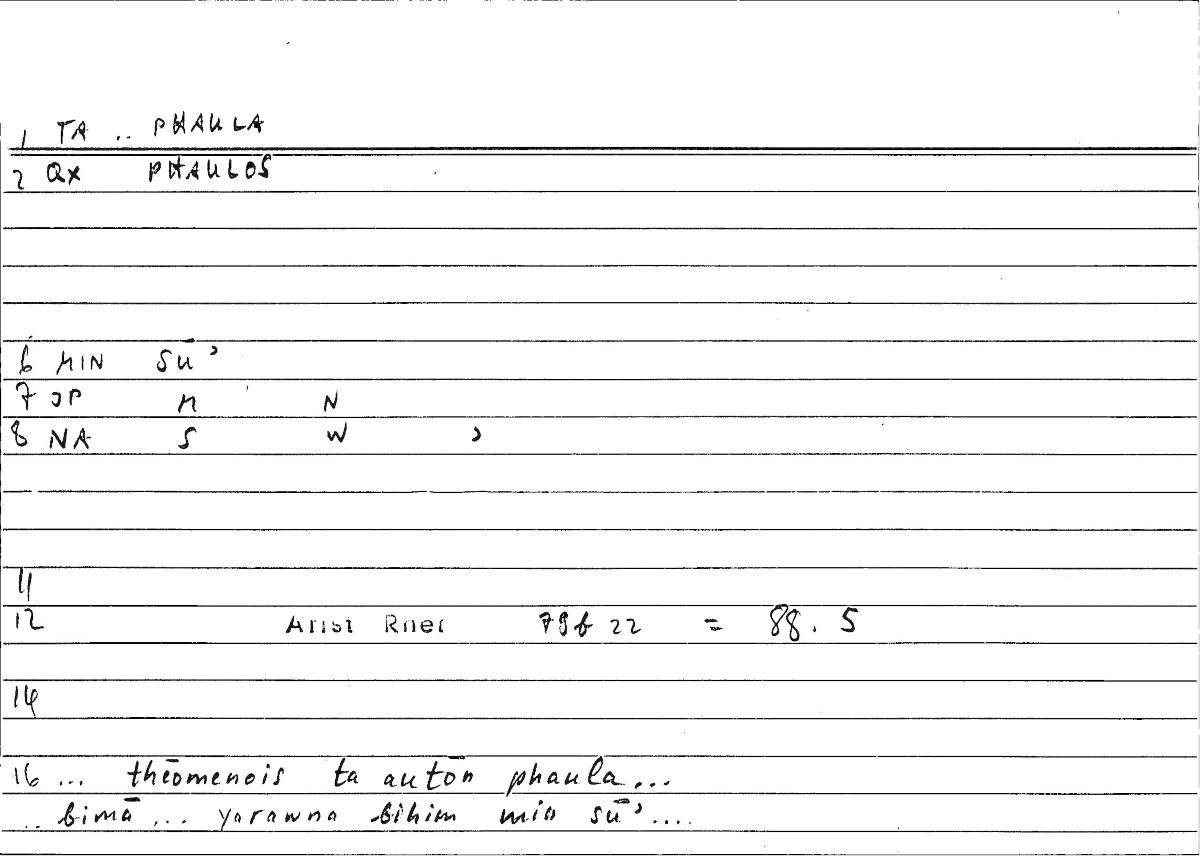 1 TA .. PHAULA
2 QX PHAULOS
6 MIN SŪʾ
7 JP M N
8 NA S W ʾ
11
12 Arist Rhet 79b 22 = 88. 5
14
16 ... theōmenois ta autōn phaula...
.. bimā ... yarawna bihim min sūʾ....